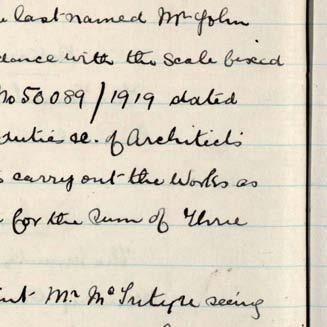 last named Mr John
dance with the scale fixed
No 50089/1919 dated
duties &c. of Architects
carry out the Works as
for the Sum of Three
Mr McIntyre seeing